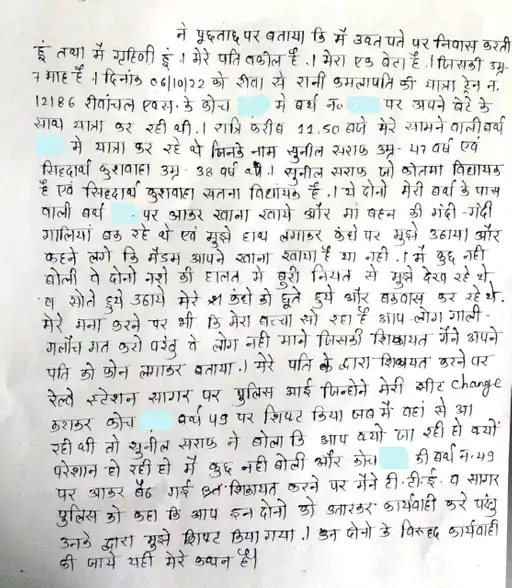 ने पूछताछ पर बताया कि मैं उक्त पते पर निवास करती
हूं तथा मैं गृहिणी हूं । मेरे पति वकील है । मेरा एक बेटा है । जिसकी उम्र-
7 माह है । दिनांक 06/10/22 को रीवा से रानी कमलापति की यात्रा ट्रेन न.
12186 रीवांचल एक्स. के कोच में बर्थ न. पर अपने बेटे के
साथ यात्रा कर रही थी । रात्रि करीब 11.50 बजे मेरे सामने वाली बर्थ
में यात्रा कर रहे थे जिनके नाम सुनील सराफ उम्र- 47 वर्ष एवं
सिद्दार्थ कुशवाहा उम्र- 38 वर्ष थे । सुनील सराफ जो कोतमा विधायक
है एवं सिद्दार्थ कुशवाहा सतना विधायक है । ये दोनों मेरी बर्थ के पास
वाली बर्थ पर आकर खाना खाये और मां बहन की गंदी-गंदी
गालियां बक रहे थे एवं मुझे हाथ लगाकर कंधे पर मुझे उठाया और
कहने लगे कि मैडम आपने खाना खाया है या नही । मैं कुछ नही
बोली वे दोनो नशे की हालत में बुरी नियत से मुझे देख रहे थे
व सोते हुये उठाये मेरे कंधे को छूते हुये और बकवास कर रहे थे.
मेरे मना करने पर भी कि मेरा बच्चा सो रहा है आप लोग गाली-
गलौच मत करो परंतु वे लोग नही माने जिसकी शिकायत मैंने अपने
पति को फोन लगाकर बताया । मेरे पति के द्वारा शिकायत करने पर
रेल्वे स्टेशन सागर पर पुलिस आई जिन्होंने मेरी सीट change
कराकर कोच बर्थ 49 पर शिफ्ट किया जब मैं वहां से आ
रही थी तो सुनील सराफ ने बोला कि आप क्यों जा रही हो क्यों
परेशान हो रही हो मैं कुछ नही बोली और कोच की बर्थ न. 49
पर आकर बैठ गई शिकायत करने पर मैंने टी.टी.ई. व सागर
पुलिस को कहा कि आप इन दोनो को उतारकर कार्यवाही करे परंतु
उनके द्वारा मुझे शिफ्ट किया गया । इन दोनो के विरूद्ध कार्यवाही
की जाये यही मेरे कथन है।